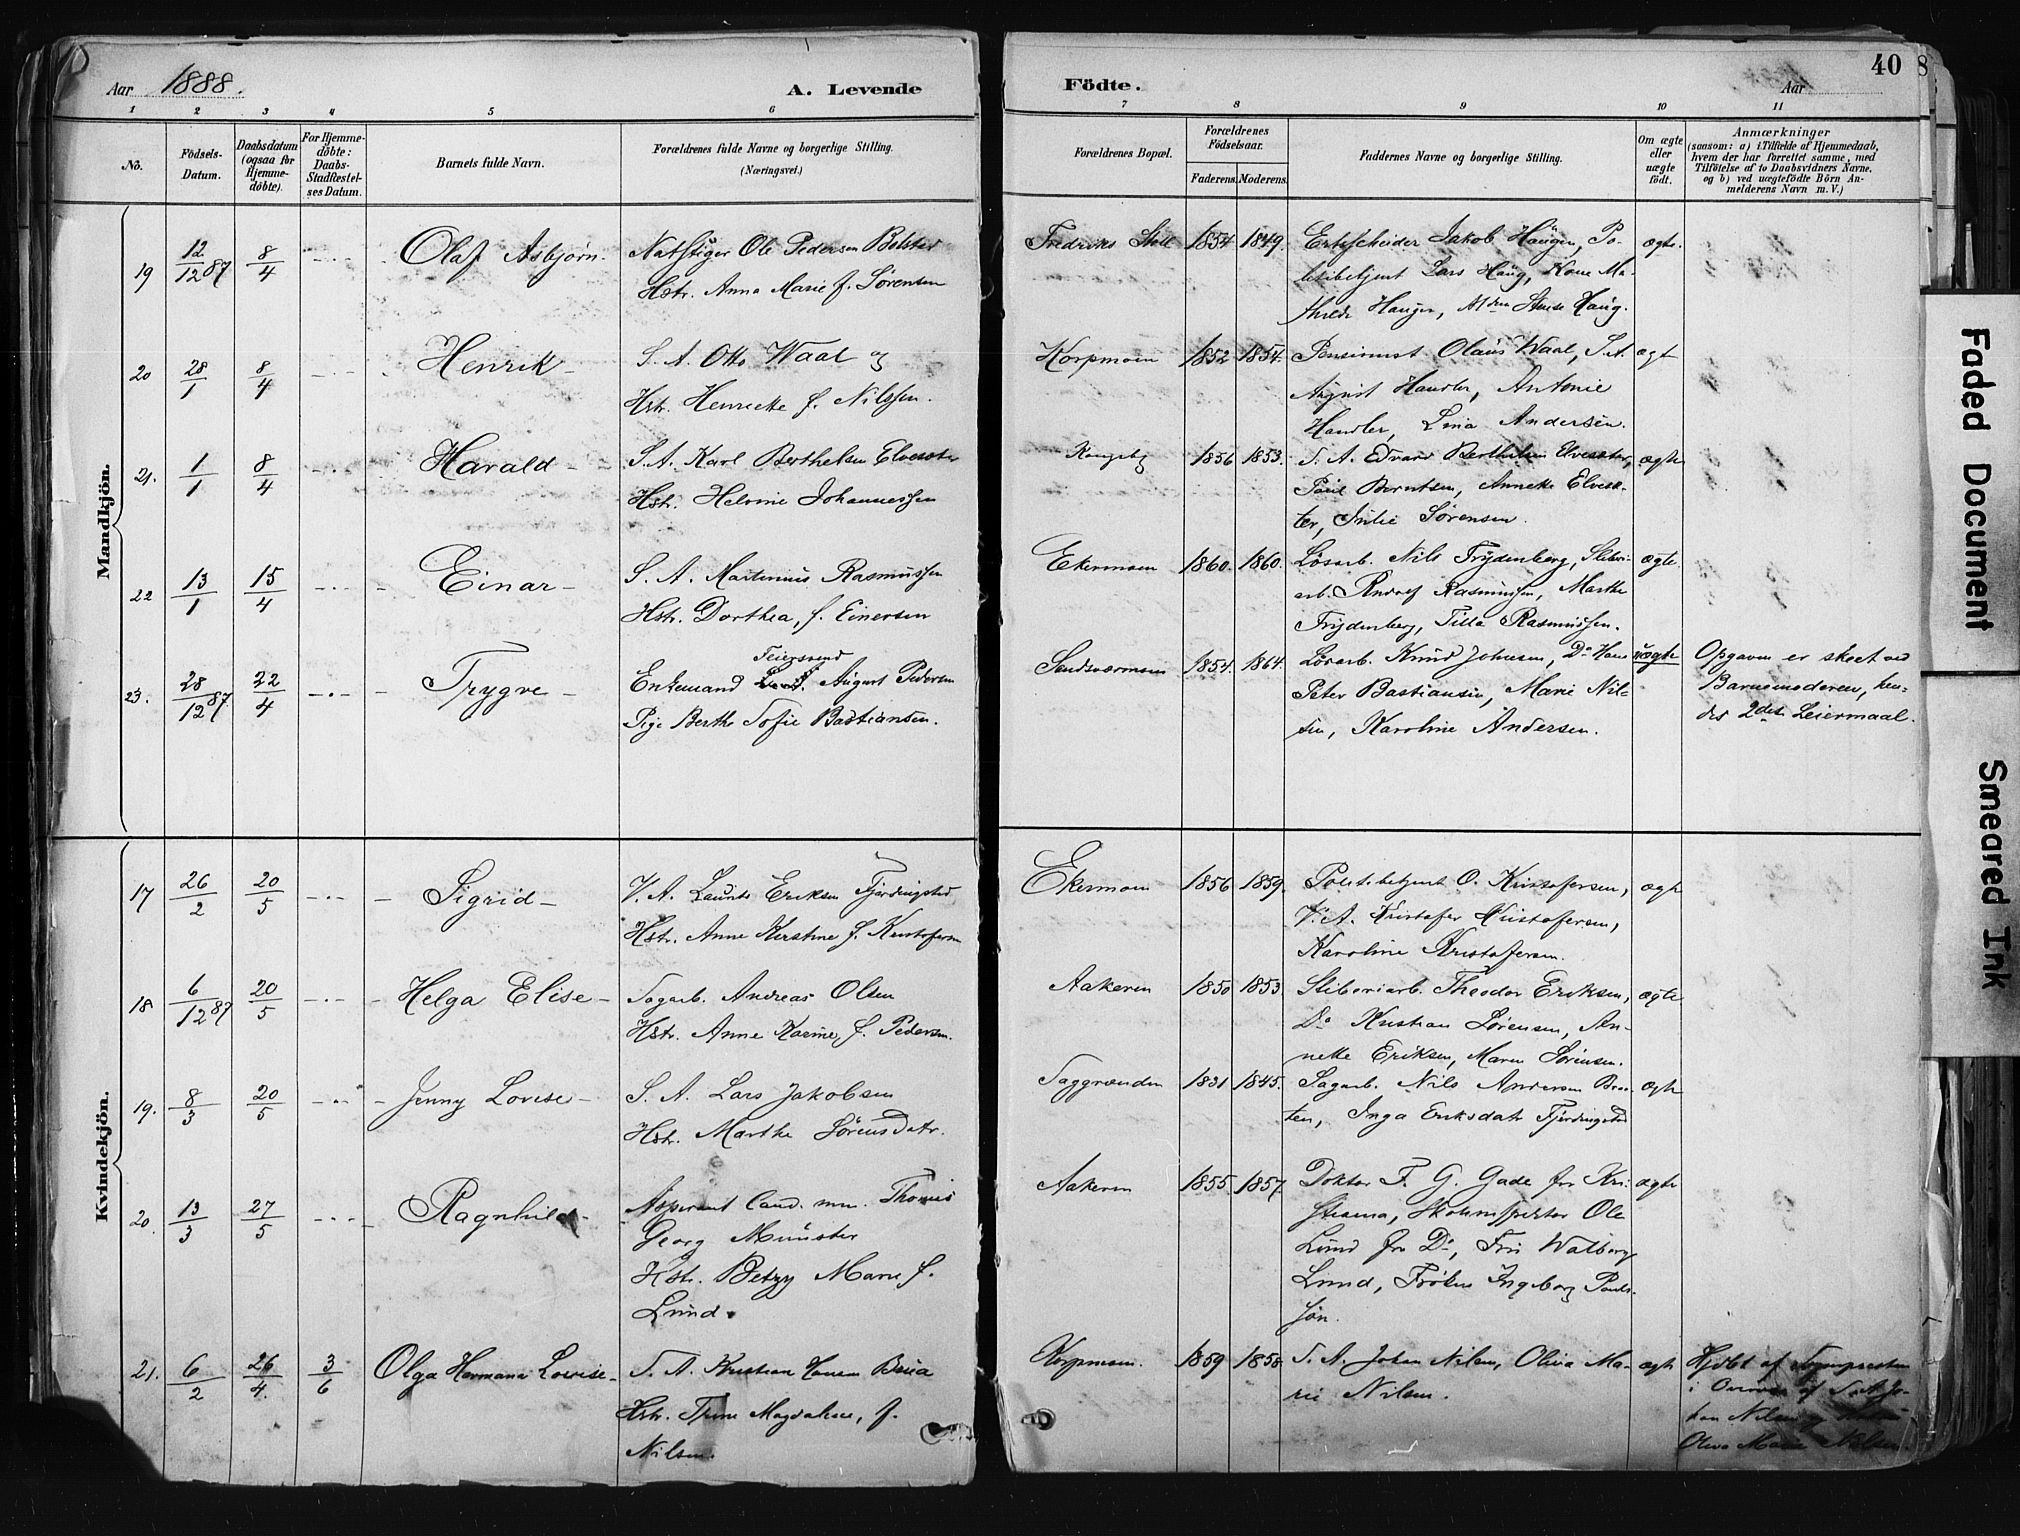 Aar 1888. A. Levende
Födte. Aar 40
8
1 2 3 4 5 6 7 8 9 10 11
No.
Födsels-Datum.
Daabsdatum (ogsaa for Hjemme-döbte).
For Hjemme-döbte: Daabs-Stadfæstel-ses Datum.
Barnets fulde Navn.
Forældrenes fulde Navne og borgerlige Stilling. (Næringsvei.)
Forældrenes Bopæl.
Forældrenes Födselsaar.
Faderens. Moderens.
Faddernes Navne og borgerlige Stilling.
Om ægte eller uægte födt.
Anmærkninger
(saasom: a) i Tilfælde af Hjemmedaab,
hvem der har forrettet samme, med
Tilföielse af to Daabsvidners Navne,
og b) ved uægtefödte Börn An-
melderens Navn m. V.)
Mandkjön.
19 12/12 87 8/4 Olaf Asbjørn Ole Pedersen Bolstad
Hstr. Anna Marie f. Sørensen
1854 1849. Jakob Haugen, Po-
litibetjent Lars Haug, Kone Ma-
thilde Haugen, Haug.
ægte.
20 28/1 8/4 Henrik S. A. Otto Waal og
Hstr. Henrikke f. Nilssen.
Korpmoen 1852 1854. Pensionist Olaus Waal, S. A.
August Handler, Antonie
Handler, Lina Andersen.
ægt
21. 1/1 8/4 Harald S. A. Karl Berthelsen Elveseter
Hstr. Helvine Johannessen
1856 1853. S. A. Edvard Berthelsen Elveseter,
Paul Berntsen, Annette Elvese-
ter, Julie Sørensen.
ægte
22 13/1 15/4 Einar S. A. Martinius Rasmussen
Hstr. Dorthea, f. Einersen
Ekermoen 1860. 1860. Løsarb. Nils Frydenberg, Sliberi-
arb. Rudolf Rasmussen, Marthe
Frydenberg, Tilla Rasmussen.
ægte.
23. 28/12 87 22/4 Trygve Feiersvend
Enkemand August Pedersen
Pige Berthe Sofie Bastiansen.
Sandsværmoen 1854. 1864. Løsarb. Knud Johnsen, Do Hans
Peter Bastiansen, Marie Nil-
sen, Karoline Andersen.
uægte Opgaven er skeet ved
Barnemoderen, hen-
des 2det Leiermaal.
Kvindekjön.
17 26/2 20/5 Sigrid V. A. Laurits Eriksen Fjerdingstad
Hstr. Anne Kirstine f. Kristofersen
Ekermoen 1856 1859. Politibetjent O. Kristofersen,
V. A. Kristofer Kristofersen,
Karoline Kristofersen.
ægte
18 6/12 87 20/5 Helga Elise Sagarb. Andreas Olsen
Hstr. Anne Karine, f. Pedersen.
Aakeren 1850 1853. Sliberiarb. Theodor Eriksen,
Do Kristian Sørensen, An-
nette Eriksen, Maren Sørensen.
ægte
19. 8/3 20/5 Jenny Lovise S. A. Lars Jakobsen
Hstr. Marthe Sørensdatr.
Saggrænden 1831 1845. Sagarb. Nils Andersen Braa-
ten, Inga Eriksdatr Fjerdingstad
ægte
20. 13/3 27/5 Ragnhild Aspirant Cand. min. Thomas
Georg Münster
Hstr. Betzy Marie f.
Lund.
Aakeren 1855 1857. Doktor F. G. Gade fra Kri-
stiania, Skoleinspektør Ole
Lund fra Do, Fru Walborg
Lund, Frøken Ingeborg Pauls-
søn.
ægte
21. 6/2 26/4. 3/6 Olga Hermana Lovise S. A. Kristian Hansen Brua
Hstr. Trine Magdalene, f.
Nilsen.
Korpmoen. 1859 1858 S. A. Johan Nilsen, Oliva Ma-
rie Nilsen.
ægte Hjdbt af Sognepresten
i Overvær af S. A. Jo-
han Nilsen og
Oliva Marie Nilsen.
Faded Document
Smeared Ink